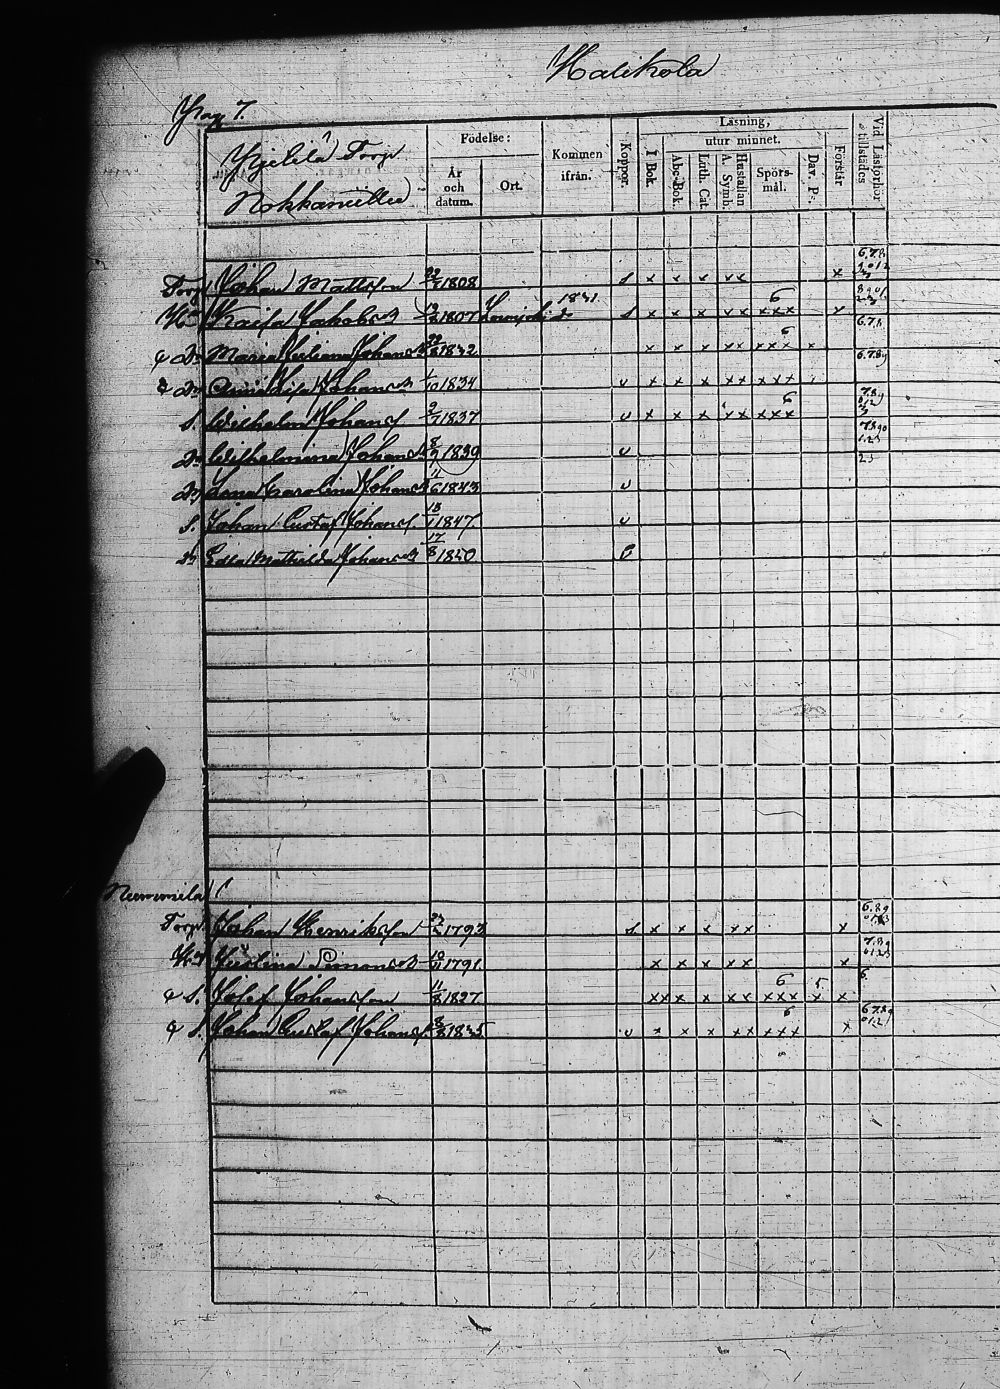 Halikola
Pag 7.
Kjelilä Torp
Nokkamüllu
Födelse:
År och datum.
Ort.
Kommen ifrån.
Koppor.
Läsning,
I Bok.
utur minnet.
Abc-Bok.
Luth. Cat.
Hustaflan A. Symb.
Spörsmål.
Dav. Ps.
Förstår
Vid Läsförhör tillstädes
Torp Johan Mattsson 1808 s x x x x x x
Hu Kaisa Jakobsd 1807 1831 s x x x x x 6 x x x x
D:r Maria Juliana Johansd 1832 x x x x x 6 x x x x 6.7.8
D:r Anna Lisa Johansd 1/10 1834 v x x x x x x x x 6.7.8.9
S. Wilhelm Johans 1837 v x x x x x 6 x x x
D:r Wilhelmina Johansd 1839 v
D:r Lena Carolina Johansd 1843 v
S. Johan Gustaf Johans 1847 v
D:r Edla Mathilda Johansd 17/8 1850
Nummela
Torp. Johan Henriksson 1793 s x x x x x x
Hu Justina Simonsd 1791 x x x x x x
S. Josef Johansson 11/8 1827 x x x x x x x 6 x x x 5 x x 6.
S. Johan Gustaf Johans. 1835 v x x x x x 6 x x x x